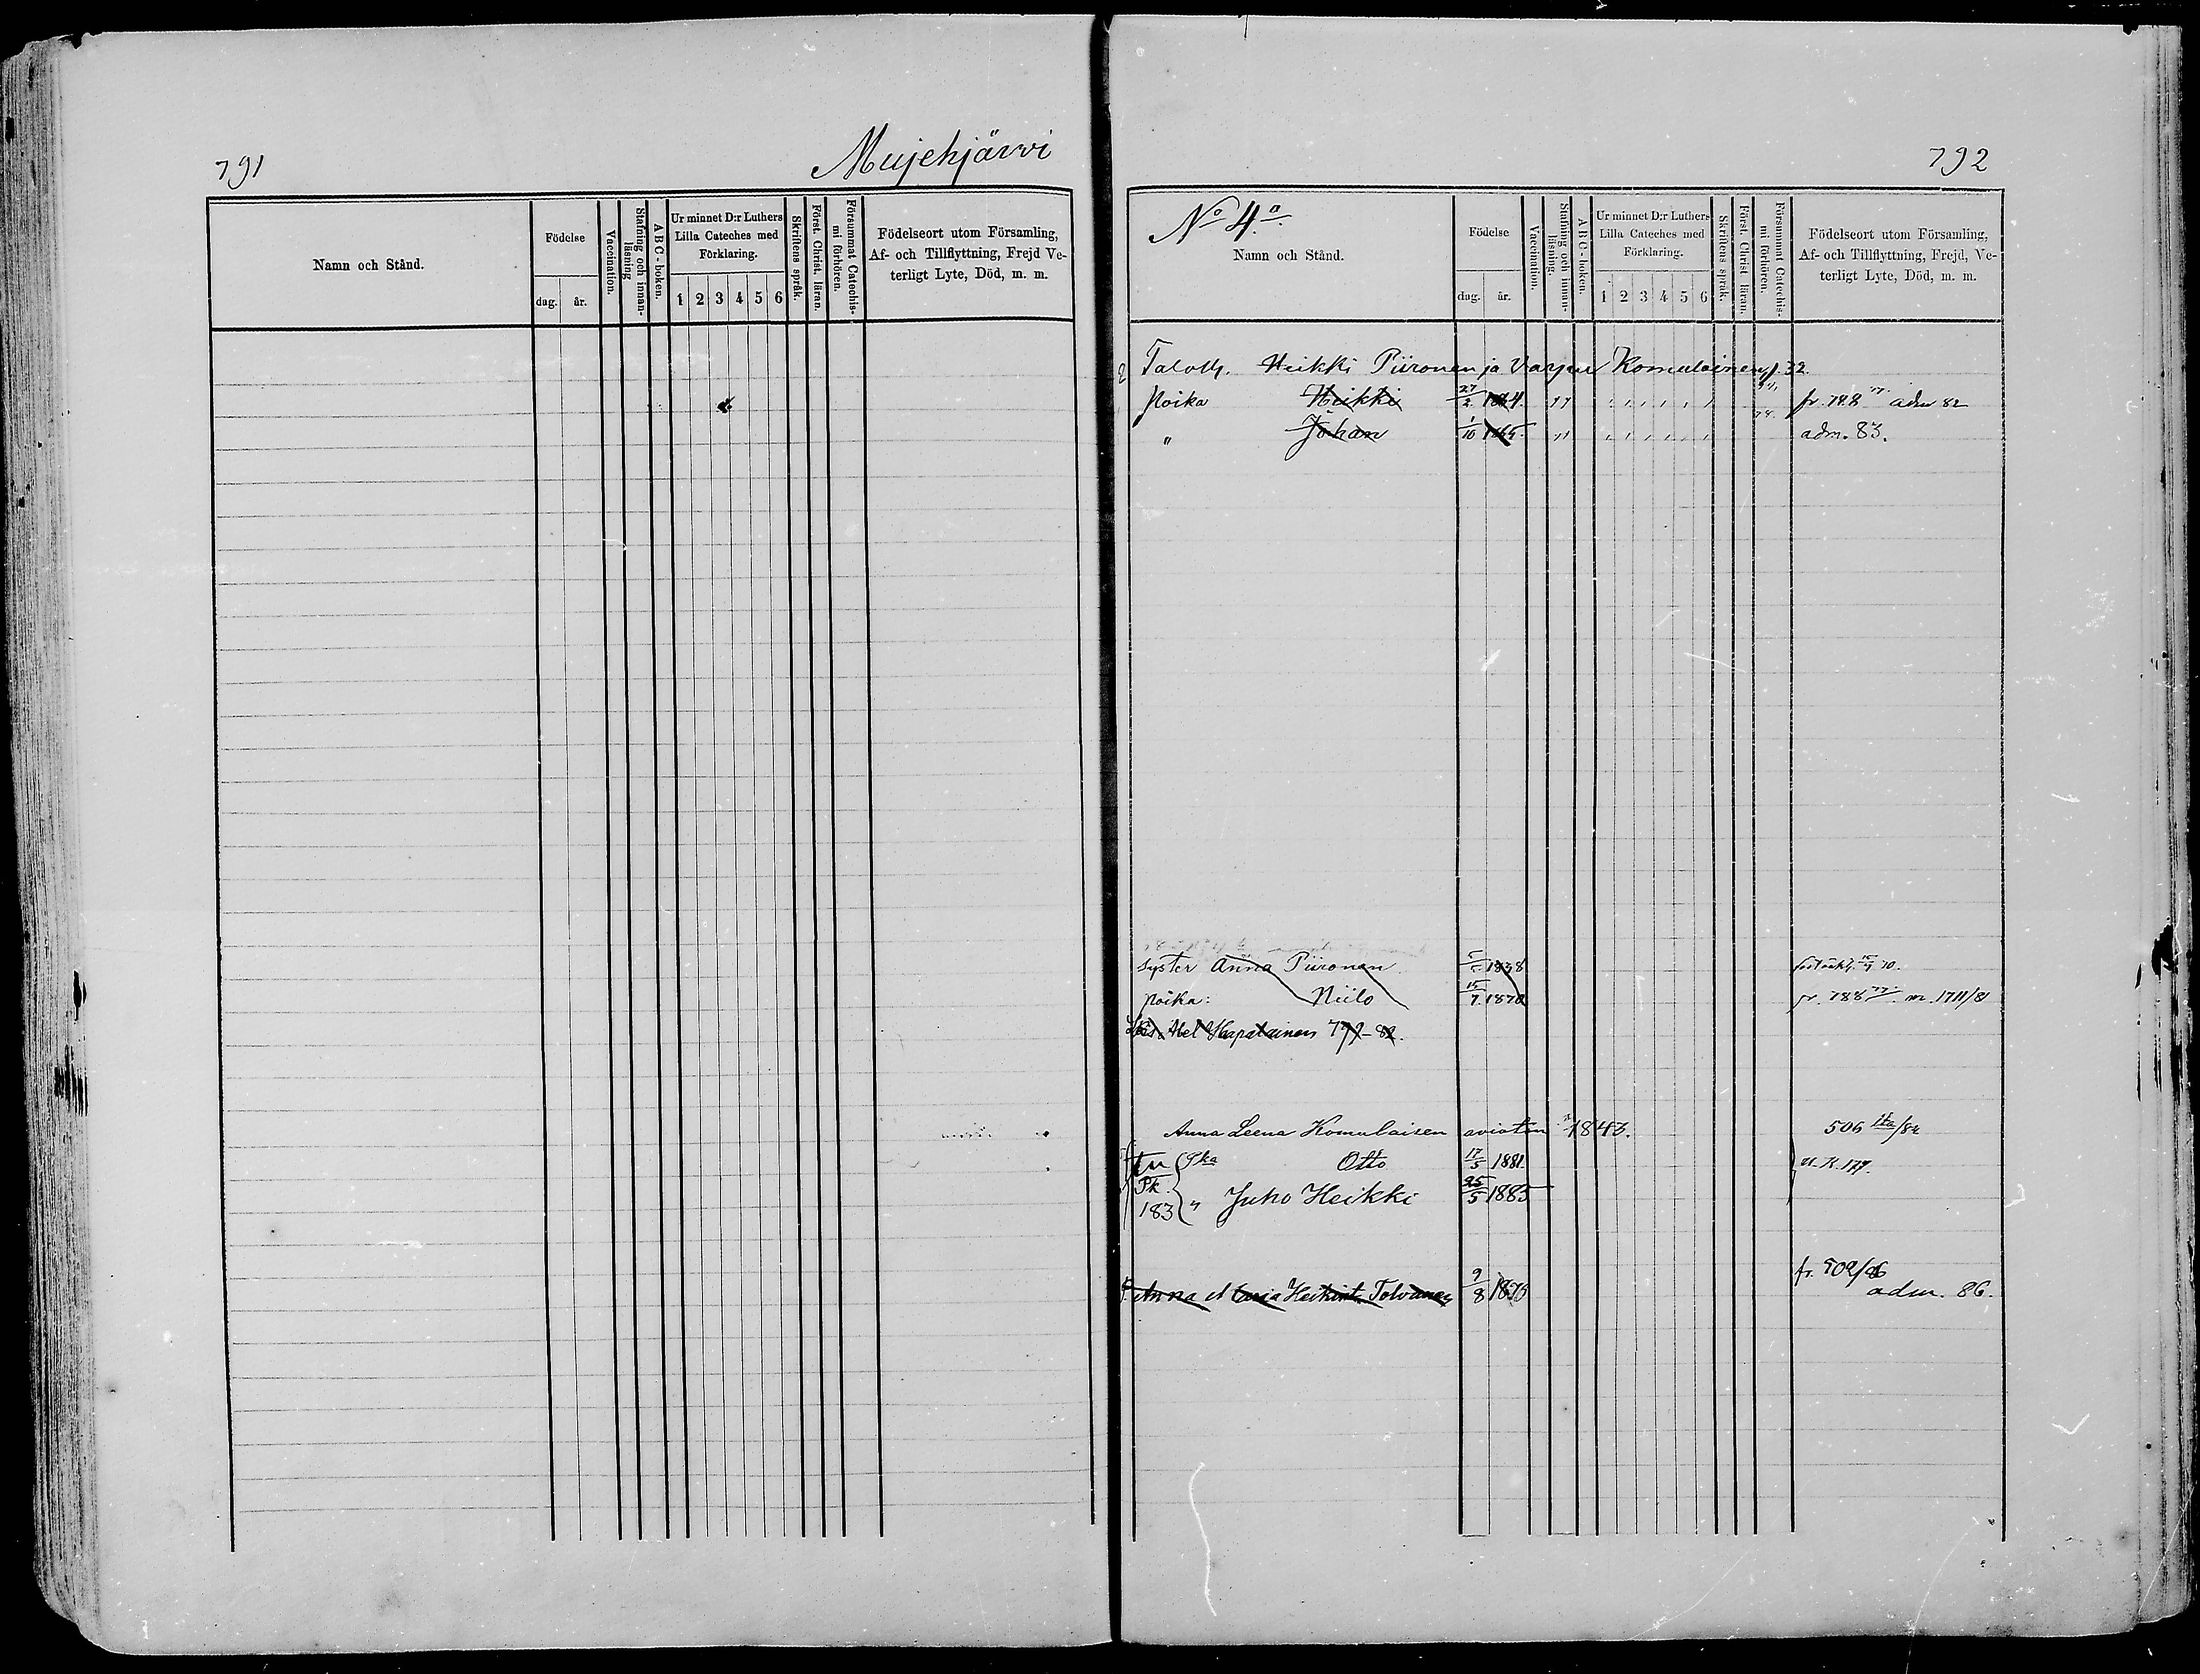 791
Mujehjärvi
Namn och Stånd.
Födelse
dag.
år.
Vaccination.
Stafning och innan-
läsning
A B C-boken.
Ur minnet D:r Luthers
Lilla Cateches med
Förklaring.
1 2 3 4 5 6
Skriftens språk.
Först. Christ. läran.
Försummat Catechis-
mi förhören.
Födelseort utom Församling,
Af- och Tillflyttning, Frejd Ve-
terligt Lyte, Död, m. m.
792
No 4.a
Namn och Stånd.
Födelse
dag.
år.
Vaccination.
Stafning och innan-
läsning.
A B C-boken.
Ur minnet D:r Luthers
Lilla Cateches med
Förklaring.
1 2 3 4 5 6
Skriftens språk.
Först. Christ läran.
Försummat Catechis-
mi förhören.
Födelseort utom Församling,
Af- och Tillflyttning, Frejd, Ve-
terligt Lyte, Död, m. m.
Heikki Piironen ja Komulainen p. 32.
Poika Heikki 27/2 1864 adm 82
" Johan 1/10 1865 adm. 83.
syster Anna Piironen 1838
poika: Niilo 15/7 1870 fr. 788 77
Anna Leena Komulaisen 1843. 506
Pka Otto 17/5 1881
Pk.
183 " Juho Heikki 25/5 1885
fr. 502/86
Anna Tolvanen 9/8 1870 adm. 86.